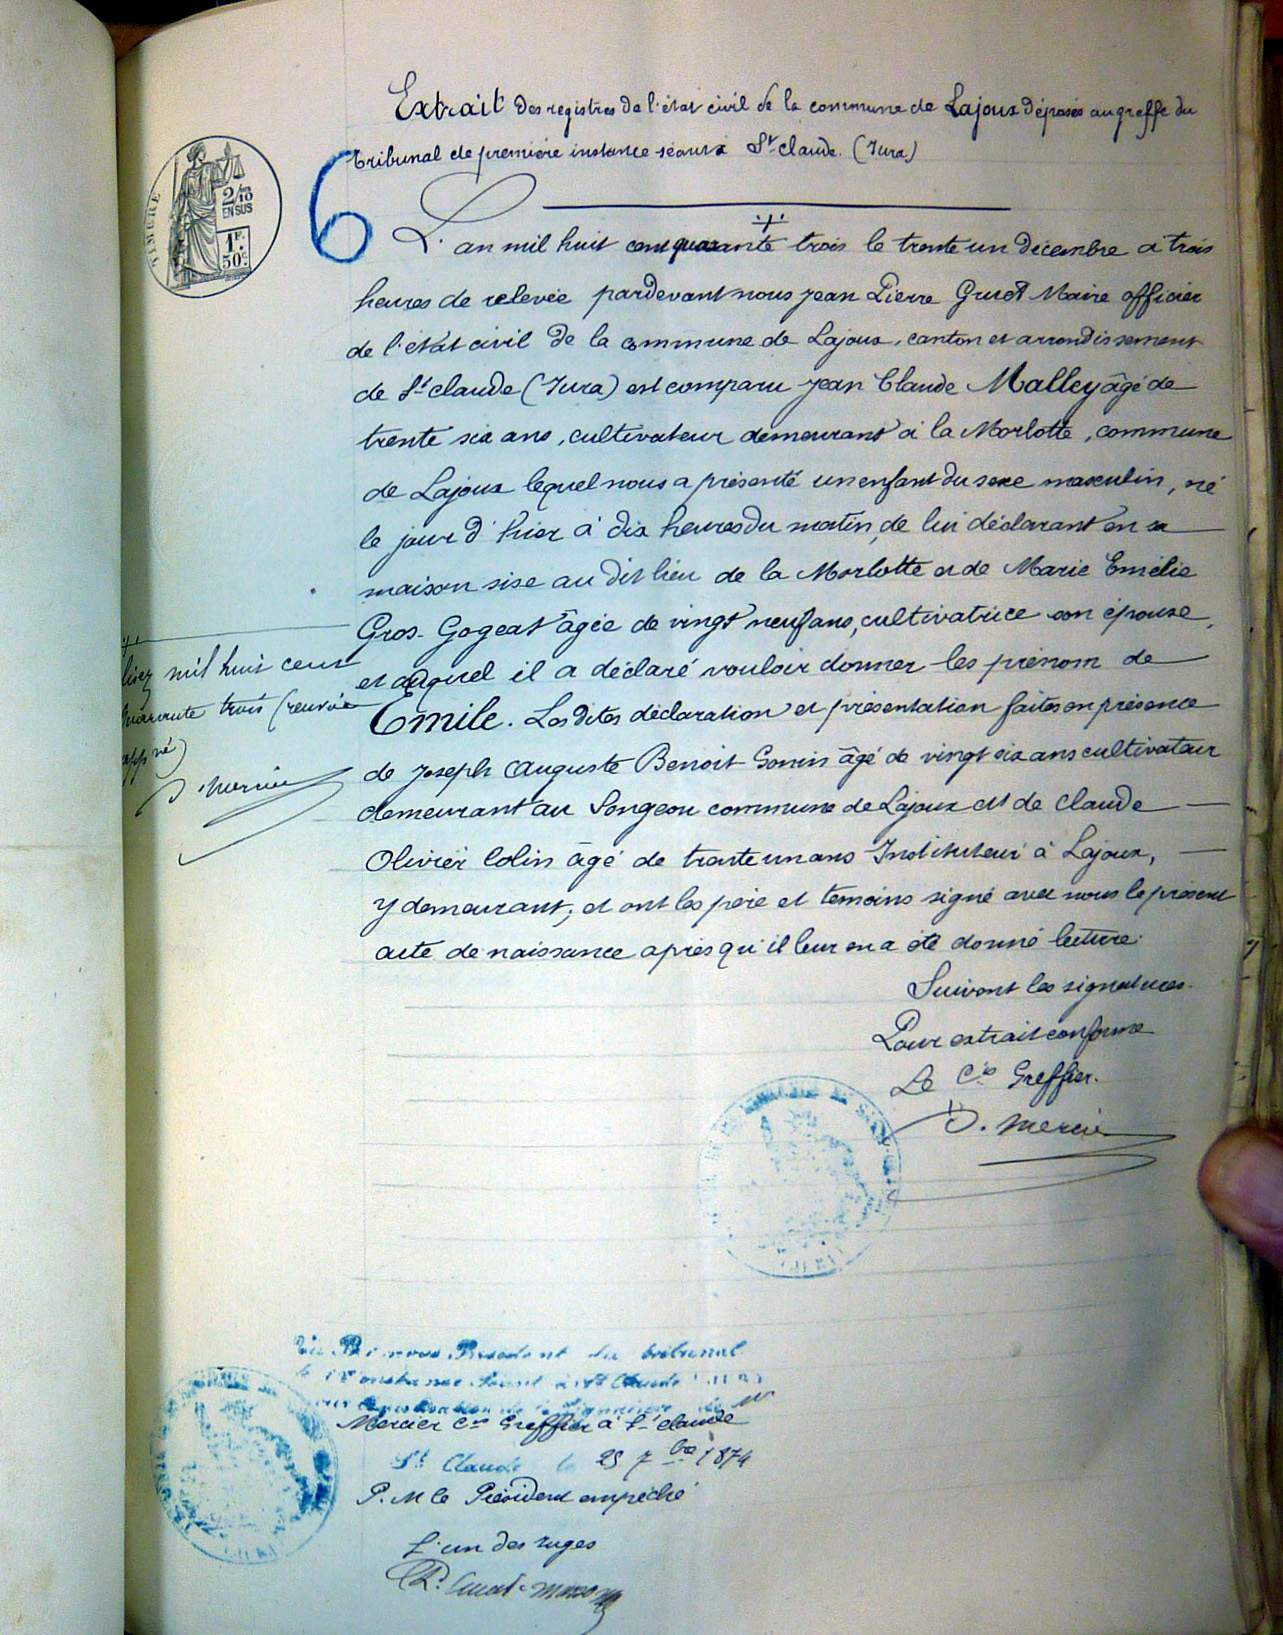 Extrait des registres de l'état civil de la commune de Lajoux déposés au greffe du
tribunal de première instance séant à St Claude. (Jura)
TIMBRE
2/10
EN SUS
1F.
50c.
6
L'an mil huit cent quarante trois le trente un décembre à trois
heures de relevée pardevant nous Jean Pierre Gruet Maire officier
de l'état civil de la commune de Lajoux, canton et arrondissement
de St Claude (Jura) est comparu Jean Claude Malley âgé de
trente six ans, cultivateur demeurant à la Morlotte, commune
de Lajoux lequel nous a présenté un enfant du sexe masculin, né
le jour d'hier à dix heures du matin, de lui déclarant en sa
maison sise au dit lieu de la Morlotte et de Marie Emélie
Gros-Gogeat âgée de vingt neuf ans, cultivatrice son épouse,
et auquel il a déclaré vouloir donner les prénom de
Emile. Les dites déclaration et présentation faites en présence
de Joseph Auguste Benoit Gonin âgé de vingt six ans cultivateur
demeurant au Songeon commune de Lajoux et de Claude
Olivier Colin âgé de trente un ans Instituteur à Lajoux,
y demeurant; et ont les père et témoins signé avec nous le présent
acte de naissance après qu'il leur en a été donné lecture.
lisez mil huit cent
quarante trois (renvoi
app vé)
D. Mercier
Suivent les signatures.
Pour extrait conforme
Le Cis Greffier.
D. Mercier
Vu Par nous Président du tribunal
de 1re instance séant à St Claude (Jura)
légalisation de la signature de Mr
Mercier Cis Greffier à St Claude
St Claude le 25 7bre 1874
P. M le Président empêché
L'un des Juges